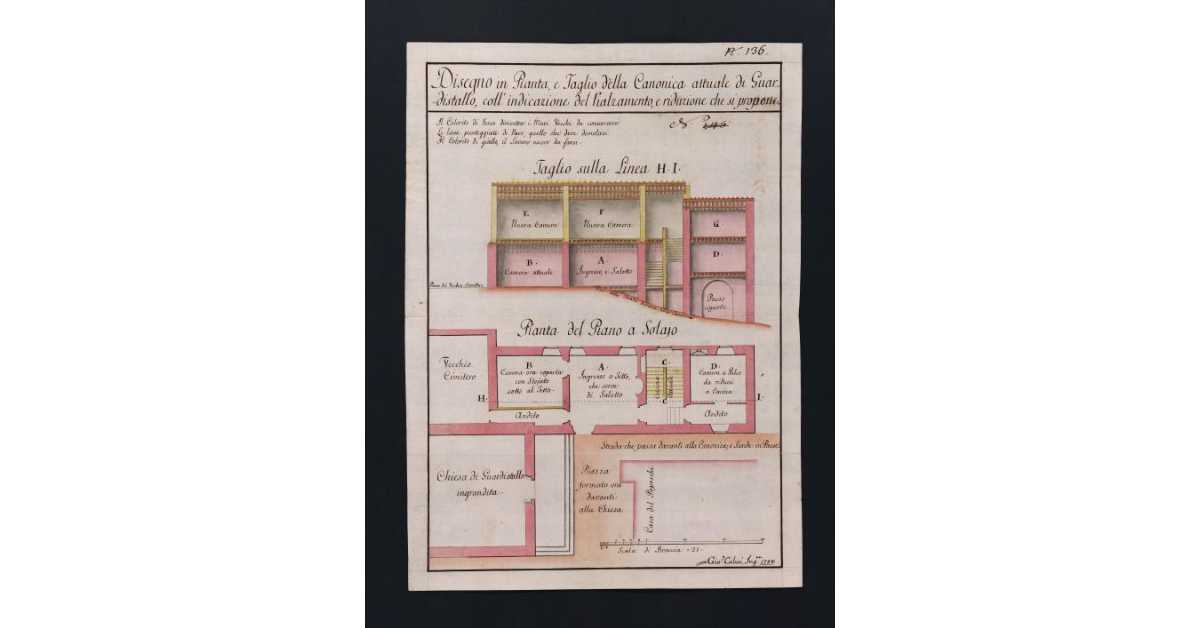 N.º 136.
Disegno in Pianta, e Taglio della Canonica attuale di Guar-
-distallo, coll' indicazione del Rialzamento, e riduzione che si propone.
Il Colorito di Rosso dimostra i Muri Vecchi da conservarsi
Le linee punteggiate di Nero, quello che deve demolirsi
Il Colorito di giallo, il Lavoro nuovo da farsi.
Taglio sulla Linea H. I.
E.
Nuova Camera
F
Nuova Camera
G.
B.
Camera attuale
A.
Ingresso, e Salotto
D.
Passo
coperto
Piano del Vecchio Cimitero
Pianta del Piano a Solajo
Vecchio
Cimitero
B
Camera ora coperta
con Stojato
sotto al Tetto
A.
Ingresso a Tetto,
che serve
di Salotto
C.
C
D.
Camera a Palco
da ridursi
a Cucina
H.
I.
Andito
Andito
Strada che passa davanti alla Canonica, e Scende in Paese
Chiesa di Guardistallo
ingrandita.
Piazza
formata ora
davanti
alla Chiesa
Casa del
Scala di Braccia 21.